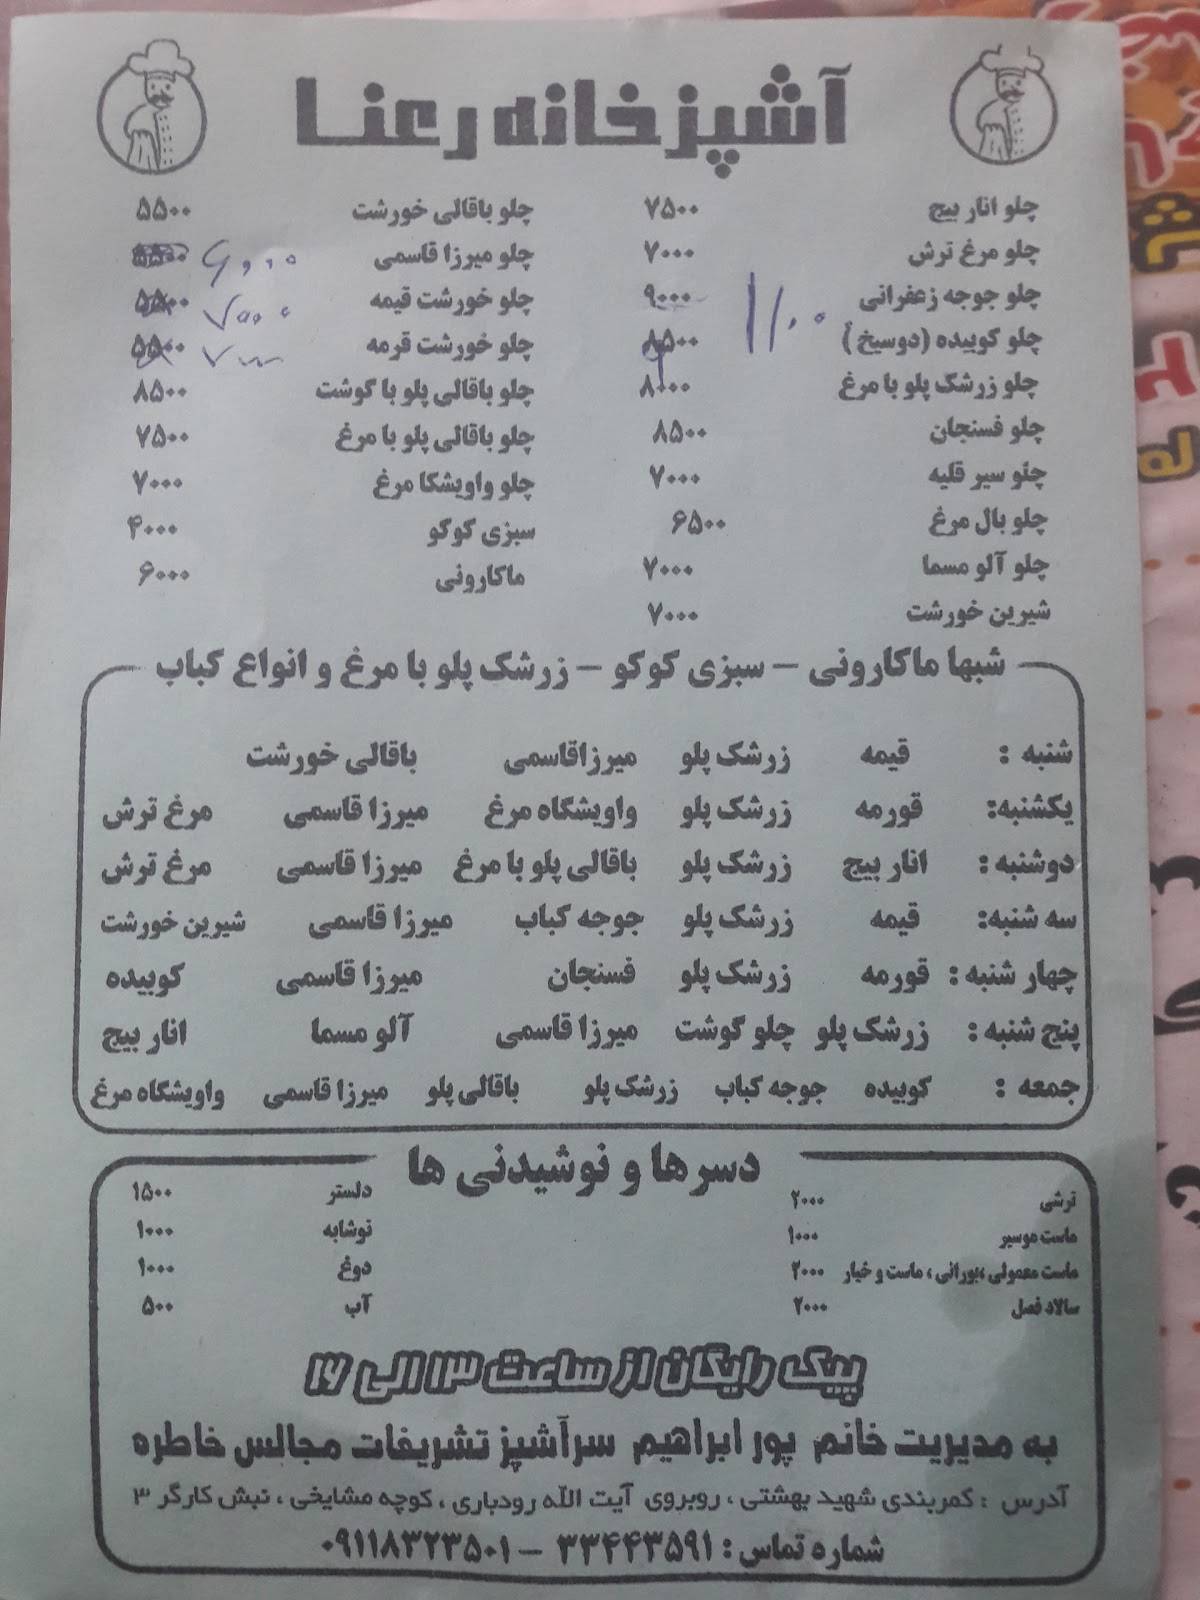 آشپزخانه رعنا
چلو انار بیج ۷۵۰۰ چلو باقالی خورشت ۵۵۰۰
چلو مرغ ترش ۷۰۰۰ چلو میرزا قاسمی ۶۰۰۰
چلو جوجه زعفرانی ۹۰۰۰ ۱۱۰۰۰ چلو خورشت قیمه ۵۵۰۰ ۷۰۰۰
چلو کوبیده (دوسیخ) ۸۵۰۰ چلو خورشت قرمه ۵۵۰۰ ۷۰۰۰
چلو زرشک پلو با مرغ ۸۰۰۰ چلو باقالی پلو با گوشت ۸۵۰۰
چلو فسنجان ۸۵۰۰ چلو باقالی پلو با مرغ ۷۵۰۰
چلو سیر قلیه ۷۰۰۰ چلو واویشکا مرغ ۷۰۰۰
چلو بال مرغ ۶۵۰۰ سبزی کوکو ۴۰۰۰
چلو آلو مسما ۷۰۰۰ ماکارونی ۶۰۰۰
شیرین خورشت ۷۰۰۰
شبها ماکارونی – سبزی کوکو – زرشک پلو با مرغ و انواع کباب
شنبه : قیمه زرشک پلو میرزاقاسمی باقالی خورشت
یکشنبه: قورمه زرشک پلو واویشگاه مرغ میرزا قاسمی مرغ ترش
دوشنبه : انار بیج زرشک پلو باقالی پلو با مرغ میرزا قاسمی مرغ ترش
سه شنبه: قیمه زرشک پلو جوجه کباب میرزا قاسمی شیرین خورشت
چهار شنبه : قورمه زرشک پلو فسنجان میرزا قاسمی کوبیده
پنج شنبه : زرشک پلو چلو گوشت میرزا قاسمی آلو مسما انار بیج
جمعه : کوبیده جوجه کباب زرشک پلو باقالی پلو میرزا قاسمی واویشگاه مرغ
دسرها و نوشیدنی ها
ترشی ۲۰۰۰ دلستر ۱۵۰۰
ماست موسیر ۱۰۰۰ نوشابه ۱۰۰۰
ماست معمولی ،بورانی ، ماست و خیار ۲۰۰۰ دوغ ۱۰۰۰
سالاد فصل ۲۰۰۰ آب ۵۰۰
پیک رایگان از ساعت ۱۳ الی ۱۶
به مدیریت خانم پور ابراهیم سرآشپز تشریفات مجالس خاطره
آدرس : کمربندی شهید بهشتی ، روبروی آیت الله رودباری ، کوچه مشایخی ، نبش کارگر ۳
شماره تماس : ۳۳۴۴۳۵۹۱ – ۰۹۱۱۸۳۲۳۵۰۱